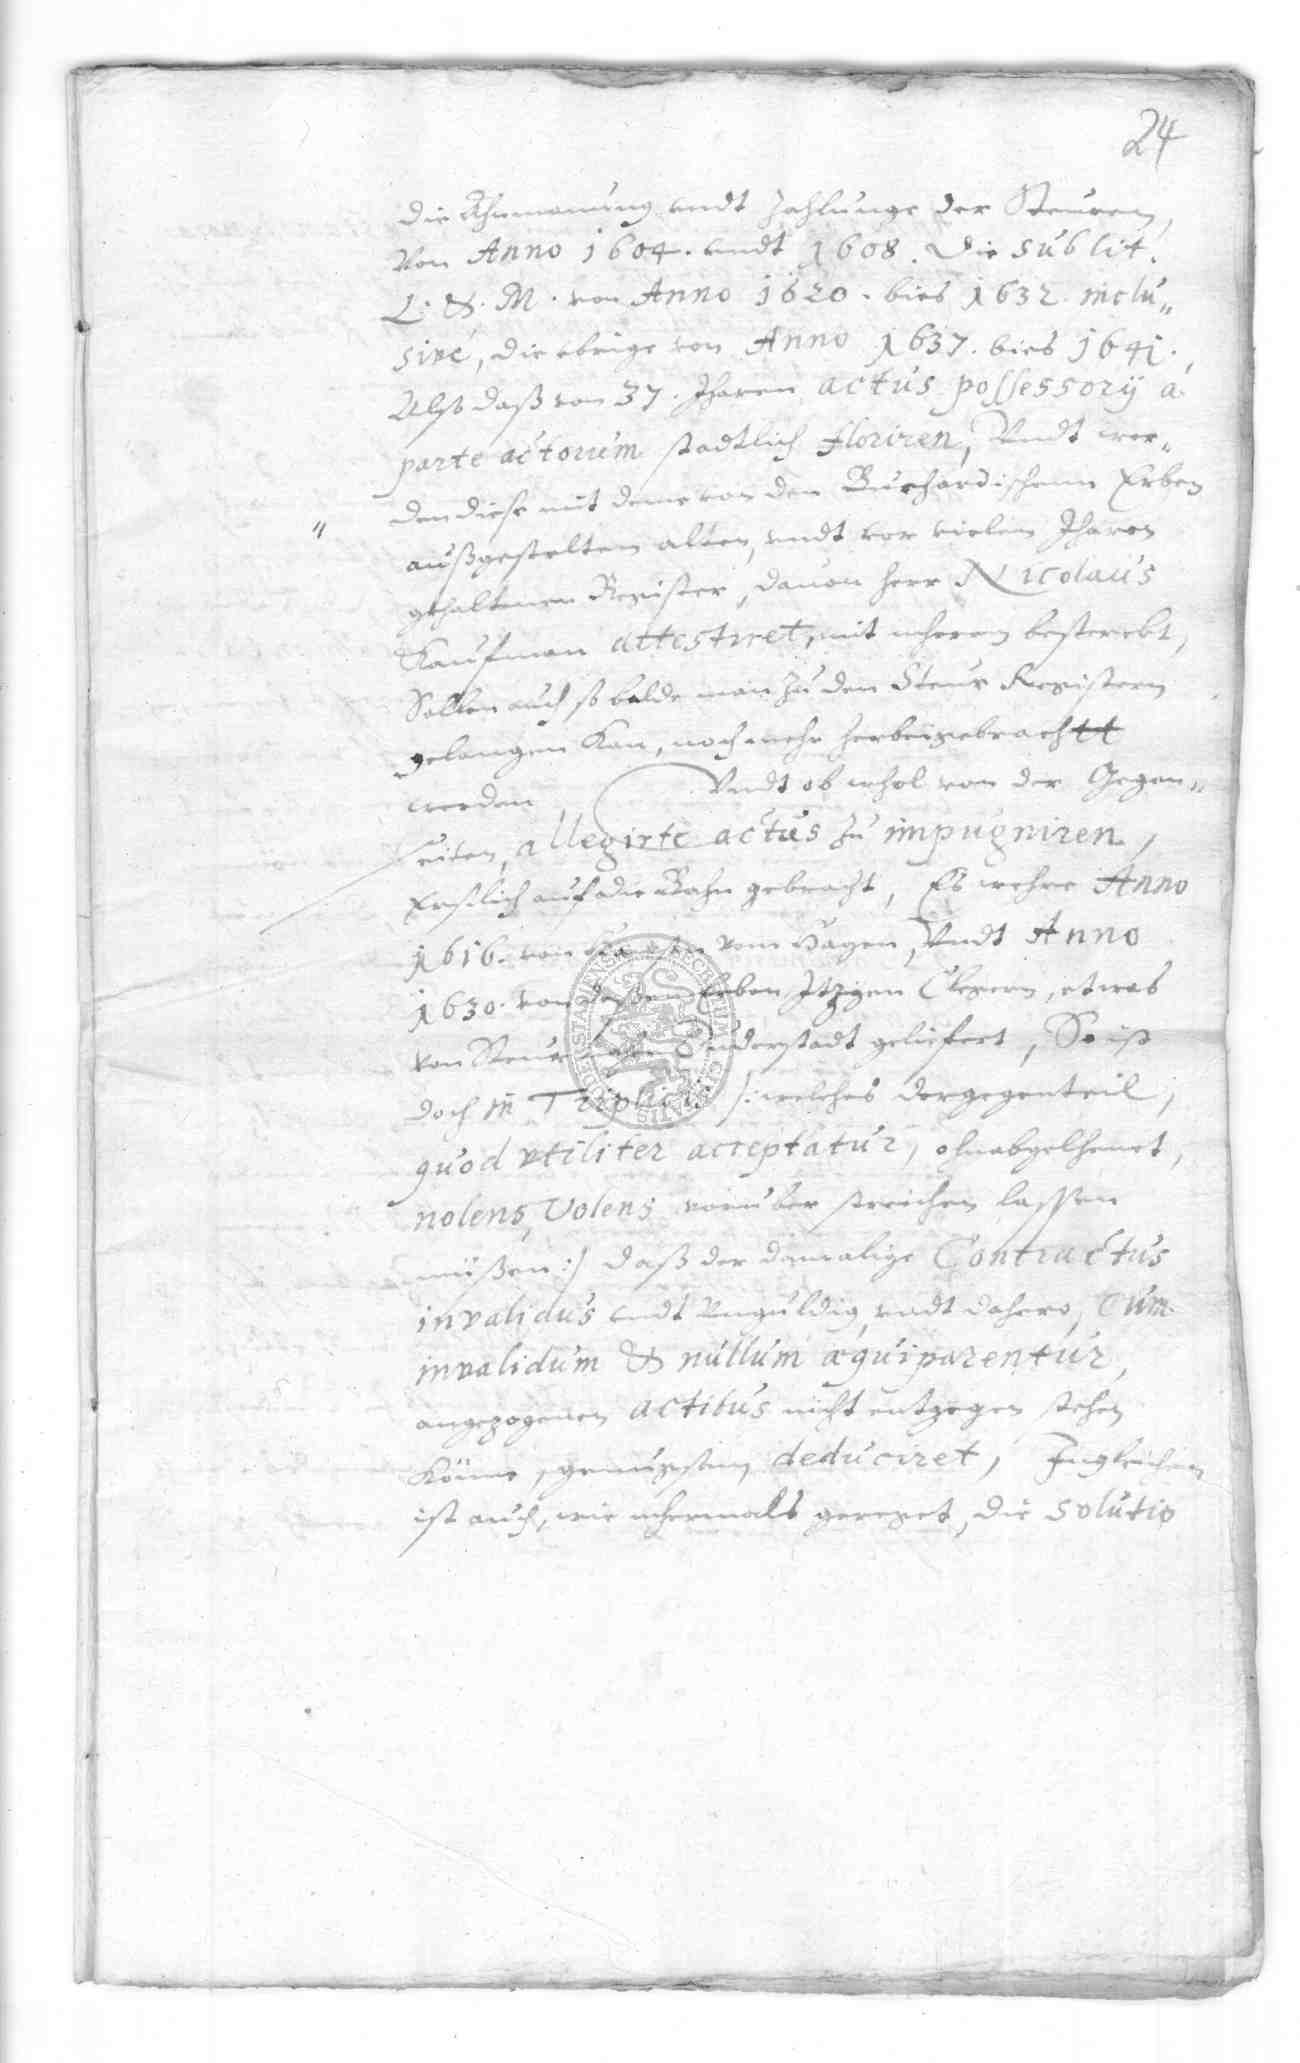 24
die Ahnmanung vndt Zahlunge der Steuren,
Von Anno 1604. vndt 1608. Die sub lit.
L. & M. von Anno 1620. bies 1632. inclu„
sivè, die vbrige von Anno 1637. bies 1641.,
Also daß von 37. Jharen actus possessorij a
parte actorum stadtlich floriren, Vndt wer„
den diese mit deme von den Burchardischenn Erben
außgestelten alten, vndt vor vielen Jharen
gehaltenen Register, davon herr Nicolaus
Kaufman attestiret, mit mherem besterckt,
Sollen auch so balde man zu den Steur Registern
gelangen Kan, noch mehr herbeigebracht
werden, Vndt ob whol von der Gegen„
seiten, allegirte actus zu impugniren,
Erstlich auf die Bahn gebracht, Es wehre Anno
1616. von vom Hagen, Vndt Anno
1630. von deßen Erben Itzigen Clegern, etwas
von Steur nach Duderstadt geliefert, So ist
doch in Triplicis /: welches der gegenteil,
quod vtiliter acceptatur, ohnabgelhenet,
nolens, Volens voruber streichen lassen
müßen :/ daß der damalige Contractus
invalidus vndt Vngultig, vndt dahero, Cum
invalidum & nullum æquiparentur,
angezogenen actibus nicht entgegen stehen
Könne, genugsam deduciret, Ingleichen
ist auch, wie mhermals gereget, die solutio